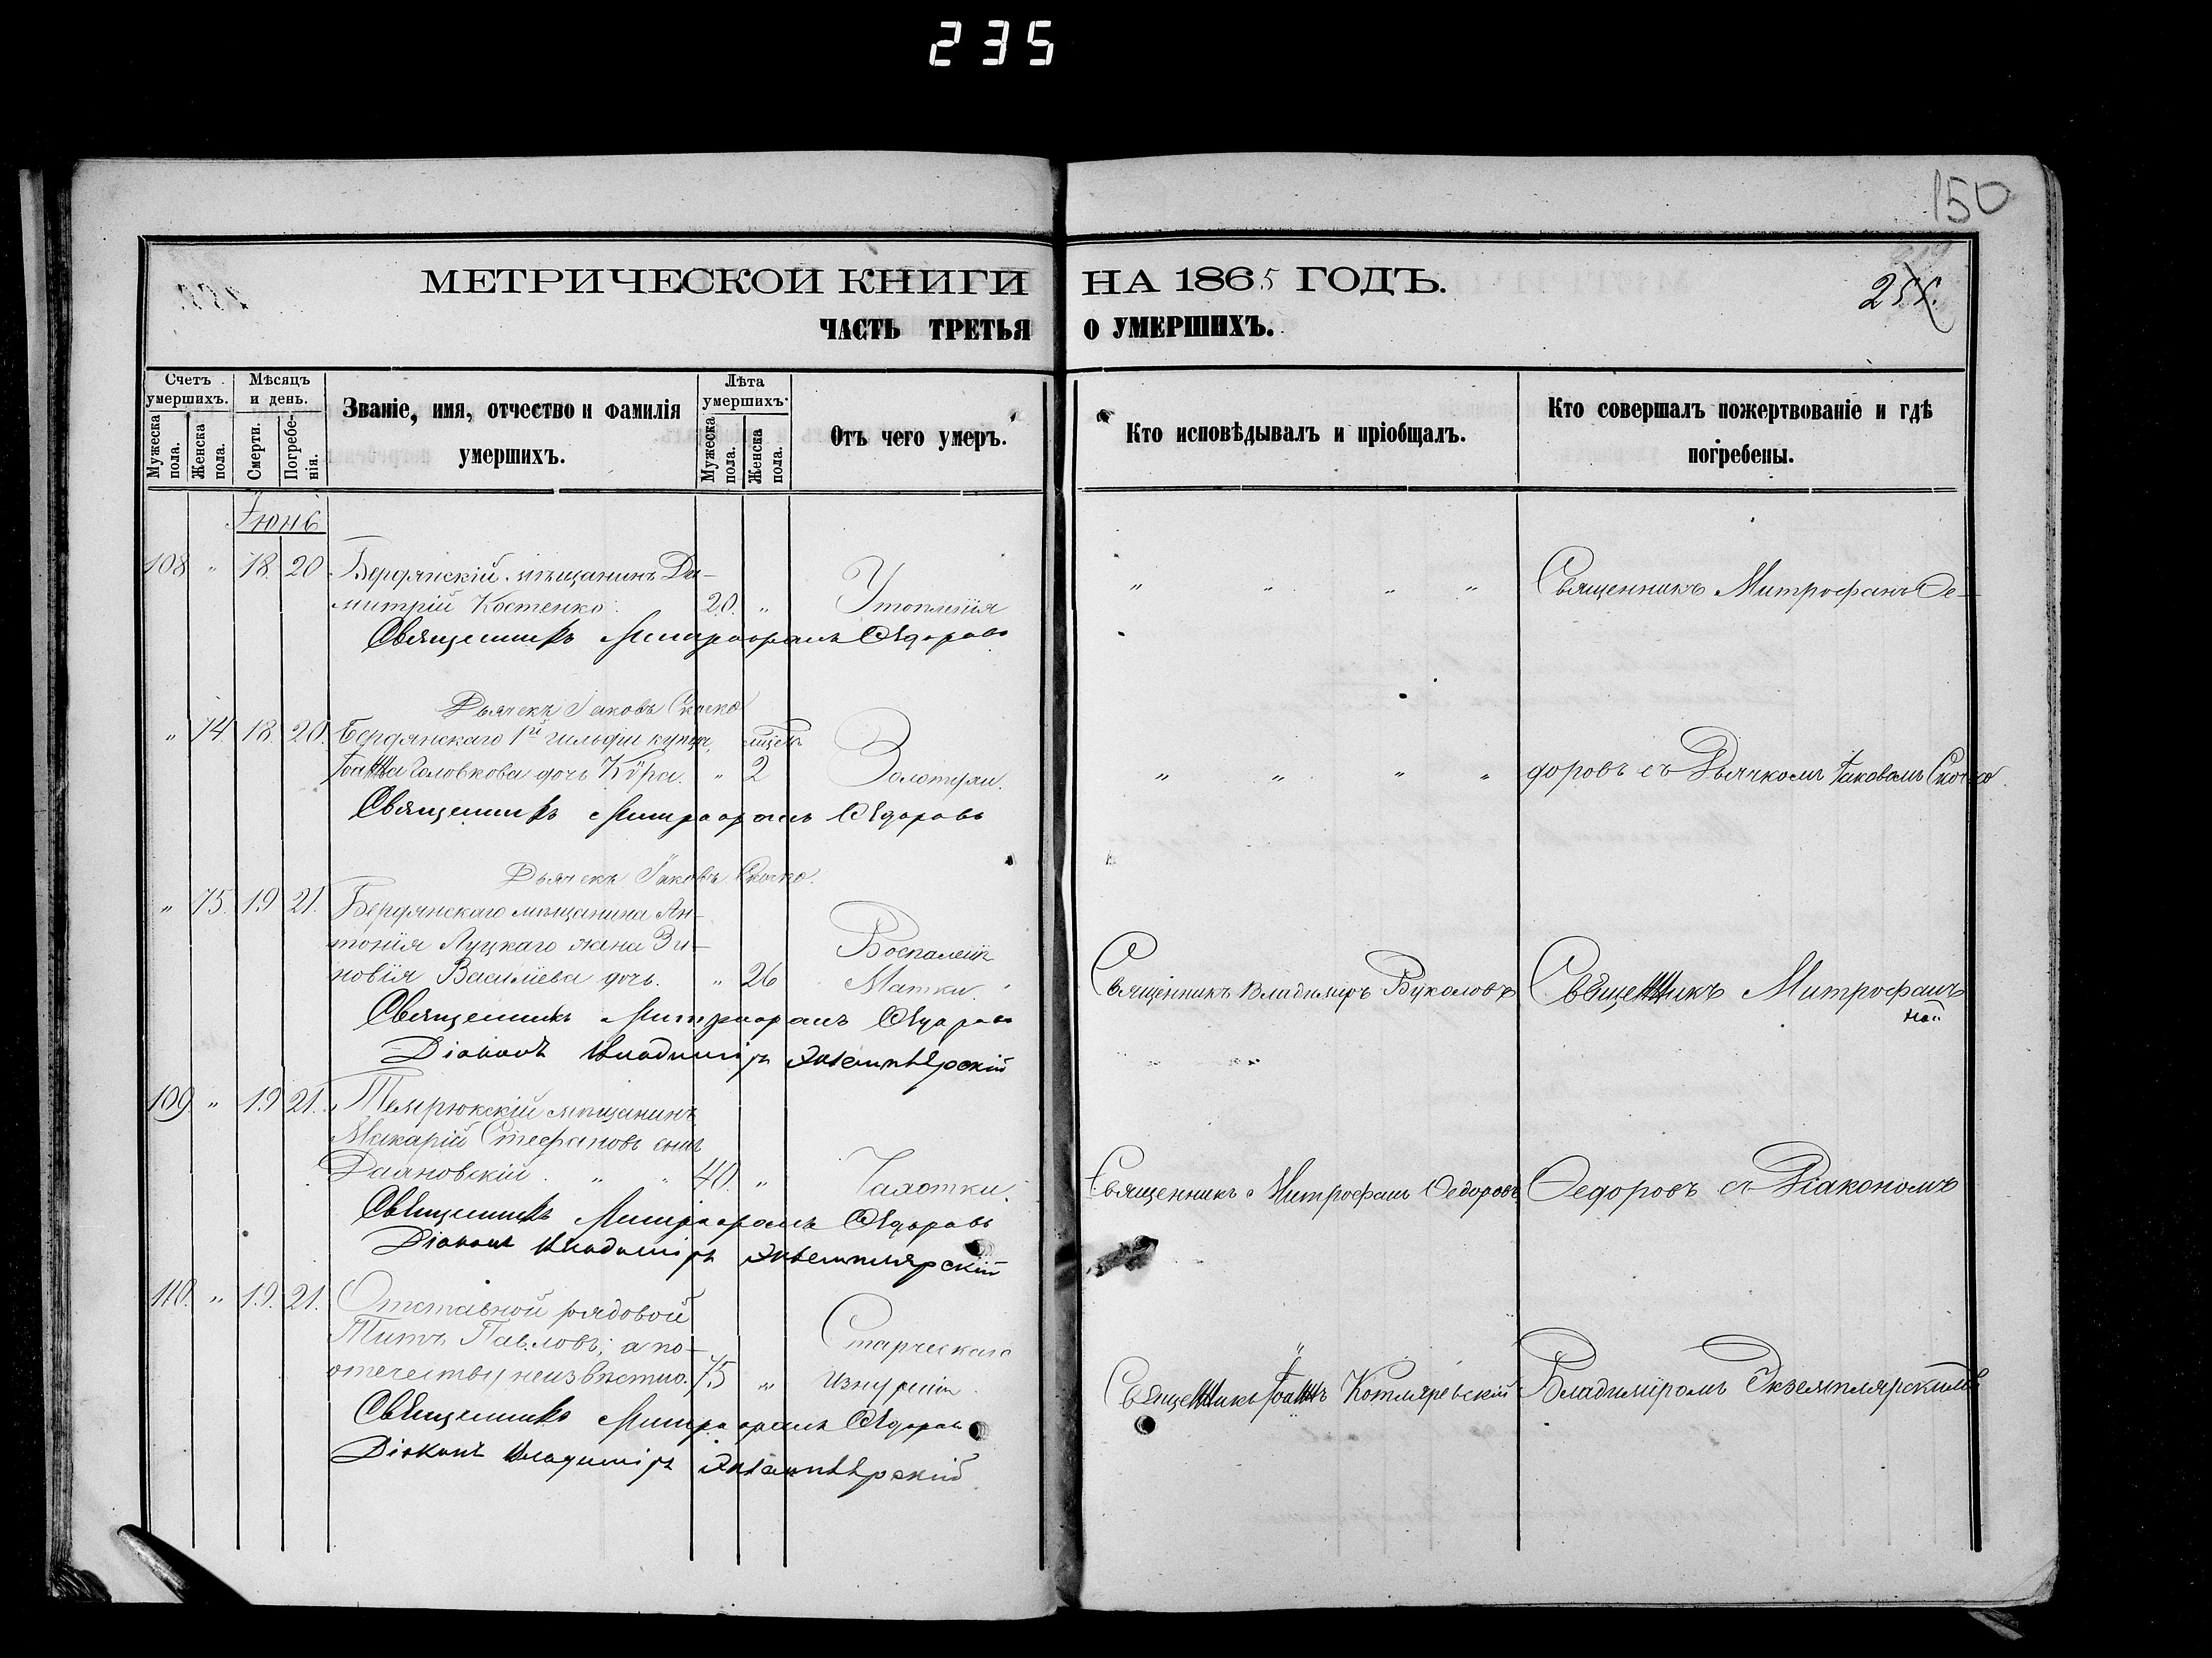 235
150
МЕТРИЧЕСКОЙ КНИГИ НА 1865 ГОДЪ.
ЧАСТЬ ТРЕТЬЯ О УМЕРШИХЪ.
Счетъ умершихъ.
Мужеска пола.
Женска пола.
Мѣсяцъ и день.
Смерти.
Погребенія.
Званіе, имя, отчество и фамилія умершихъ.
Лѣта умершихъ.
Мужеска пола.
Женска пола.
Отъ чего умеръ.
Кто исповѣдывалъ и пріобщалъ.
Кто совершалъ пожертвованіе и гдѣ погребены.
Іюнь
108 " 18. 20 Бердянскій мѣщанинъ Ди-
митрій Костенко. 20. " Утопленія
" " " " Священникъ Митрофанъ Ѳе-
Священникъ Митрофанъ Ѳедоровъ
Дьячекъ Іаковъ Скочко
" 74. 18. 20. Бердянскаго 1й гильдіи купца,
Іоанна Головкова дочь Кѵра. " 2 Золотухи.
" " " " доровъ съ Дьячкомъ Іаковомъ Скочко.
Священникъ Митрофанъ Ѳедоровъ
Дьячекъ Іаковъ Скочко.
" 75. 19 21. Бердянскаго мѣщанина Ан-
тонія Луцкаго жена Зи-
новія Васильева дочь. " 26
Воспаленія
Матки.
Священникъ Владиміръ Вуколовъ Священникъ Митрофанъ
Священникъ Митрофанъ Ѳедоровъ
Діаконъ Владиміръ Экземплярскій
109 " 19 21. Темрюкскій мѣщанинъ
Макарій Стефановъ сынъ
Даяновскій. " " 40. " Чахотки.
Священникъ Митрофанъ Ѳедоровъ Ѳедоровъ съ Діакономъ
Священникъ Митрофанъ Ѳедоровъ
Діаконъ Владиміръ Экземплярскій
110. " 19. 21. Отставной рядовой
Титъ Павловъ; а по-
отечеству неизвѣстно. 75 "
Старческаго
изнуренія.
Священникъ Іоаннъ Котляревскій Владиміромъ Экземплярскимъ
Священникъ Митрофанъ Ѳедоровъ
Діаконъ Владиміръ Экземплярскій